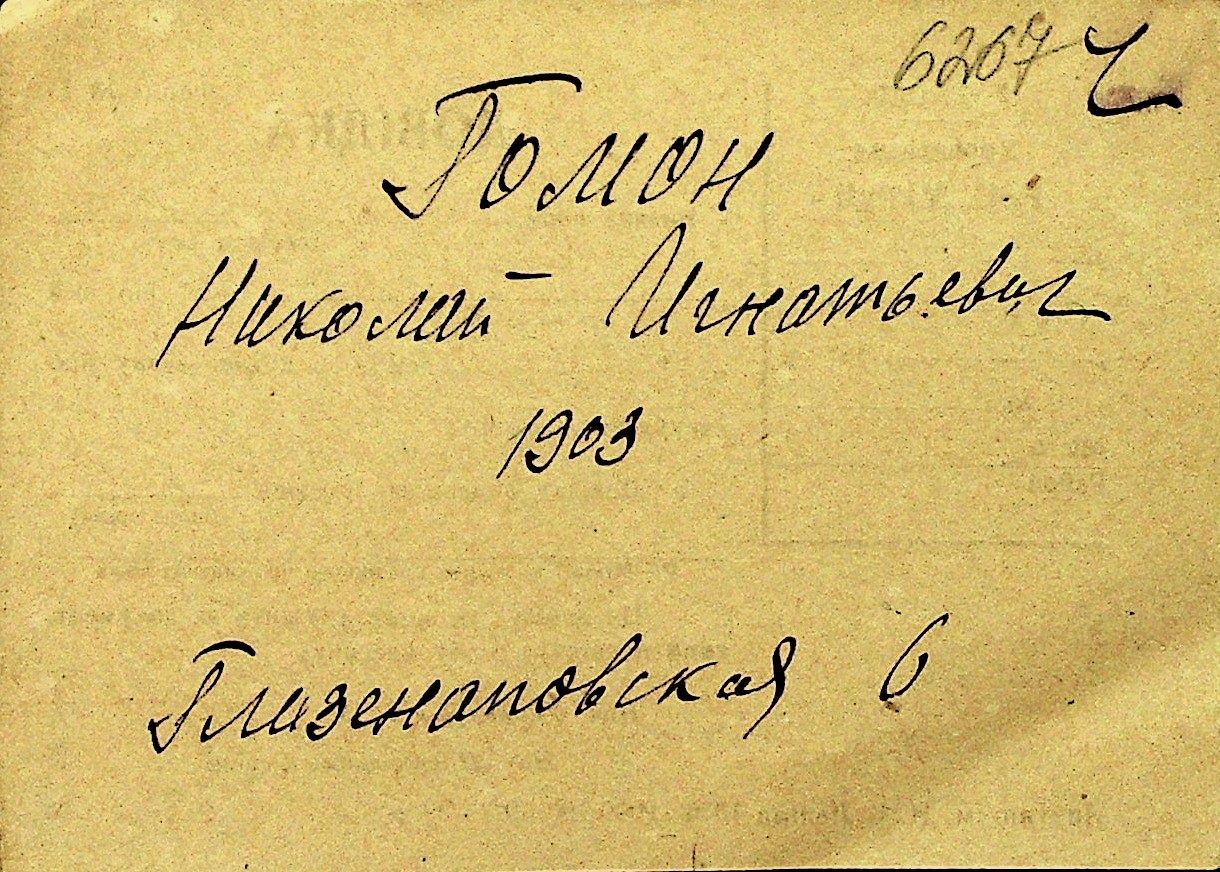 6267 Ч
Гомон
Николай Игнатьевич
1903
Глизенаповская 6